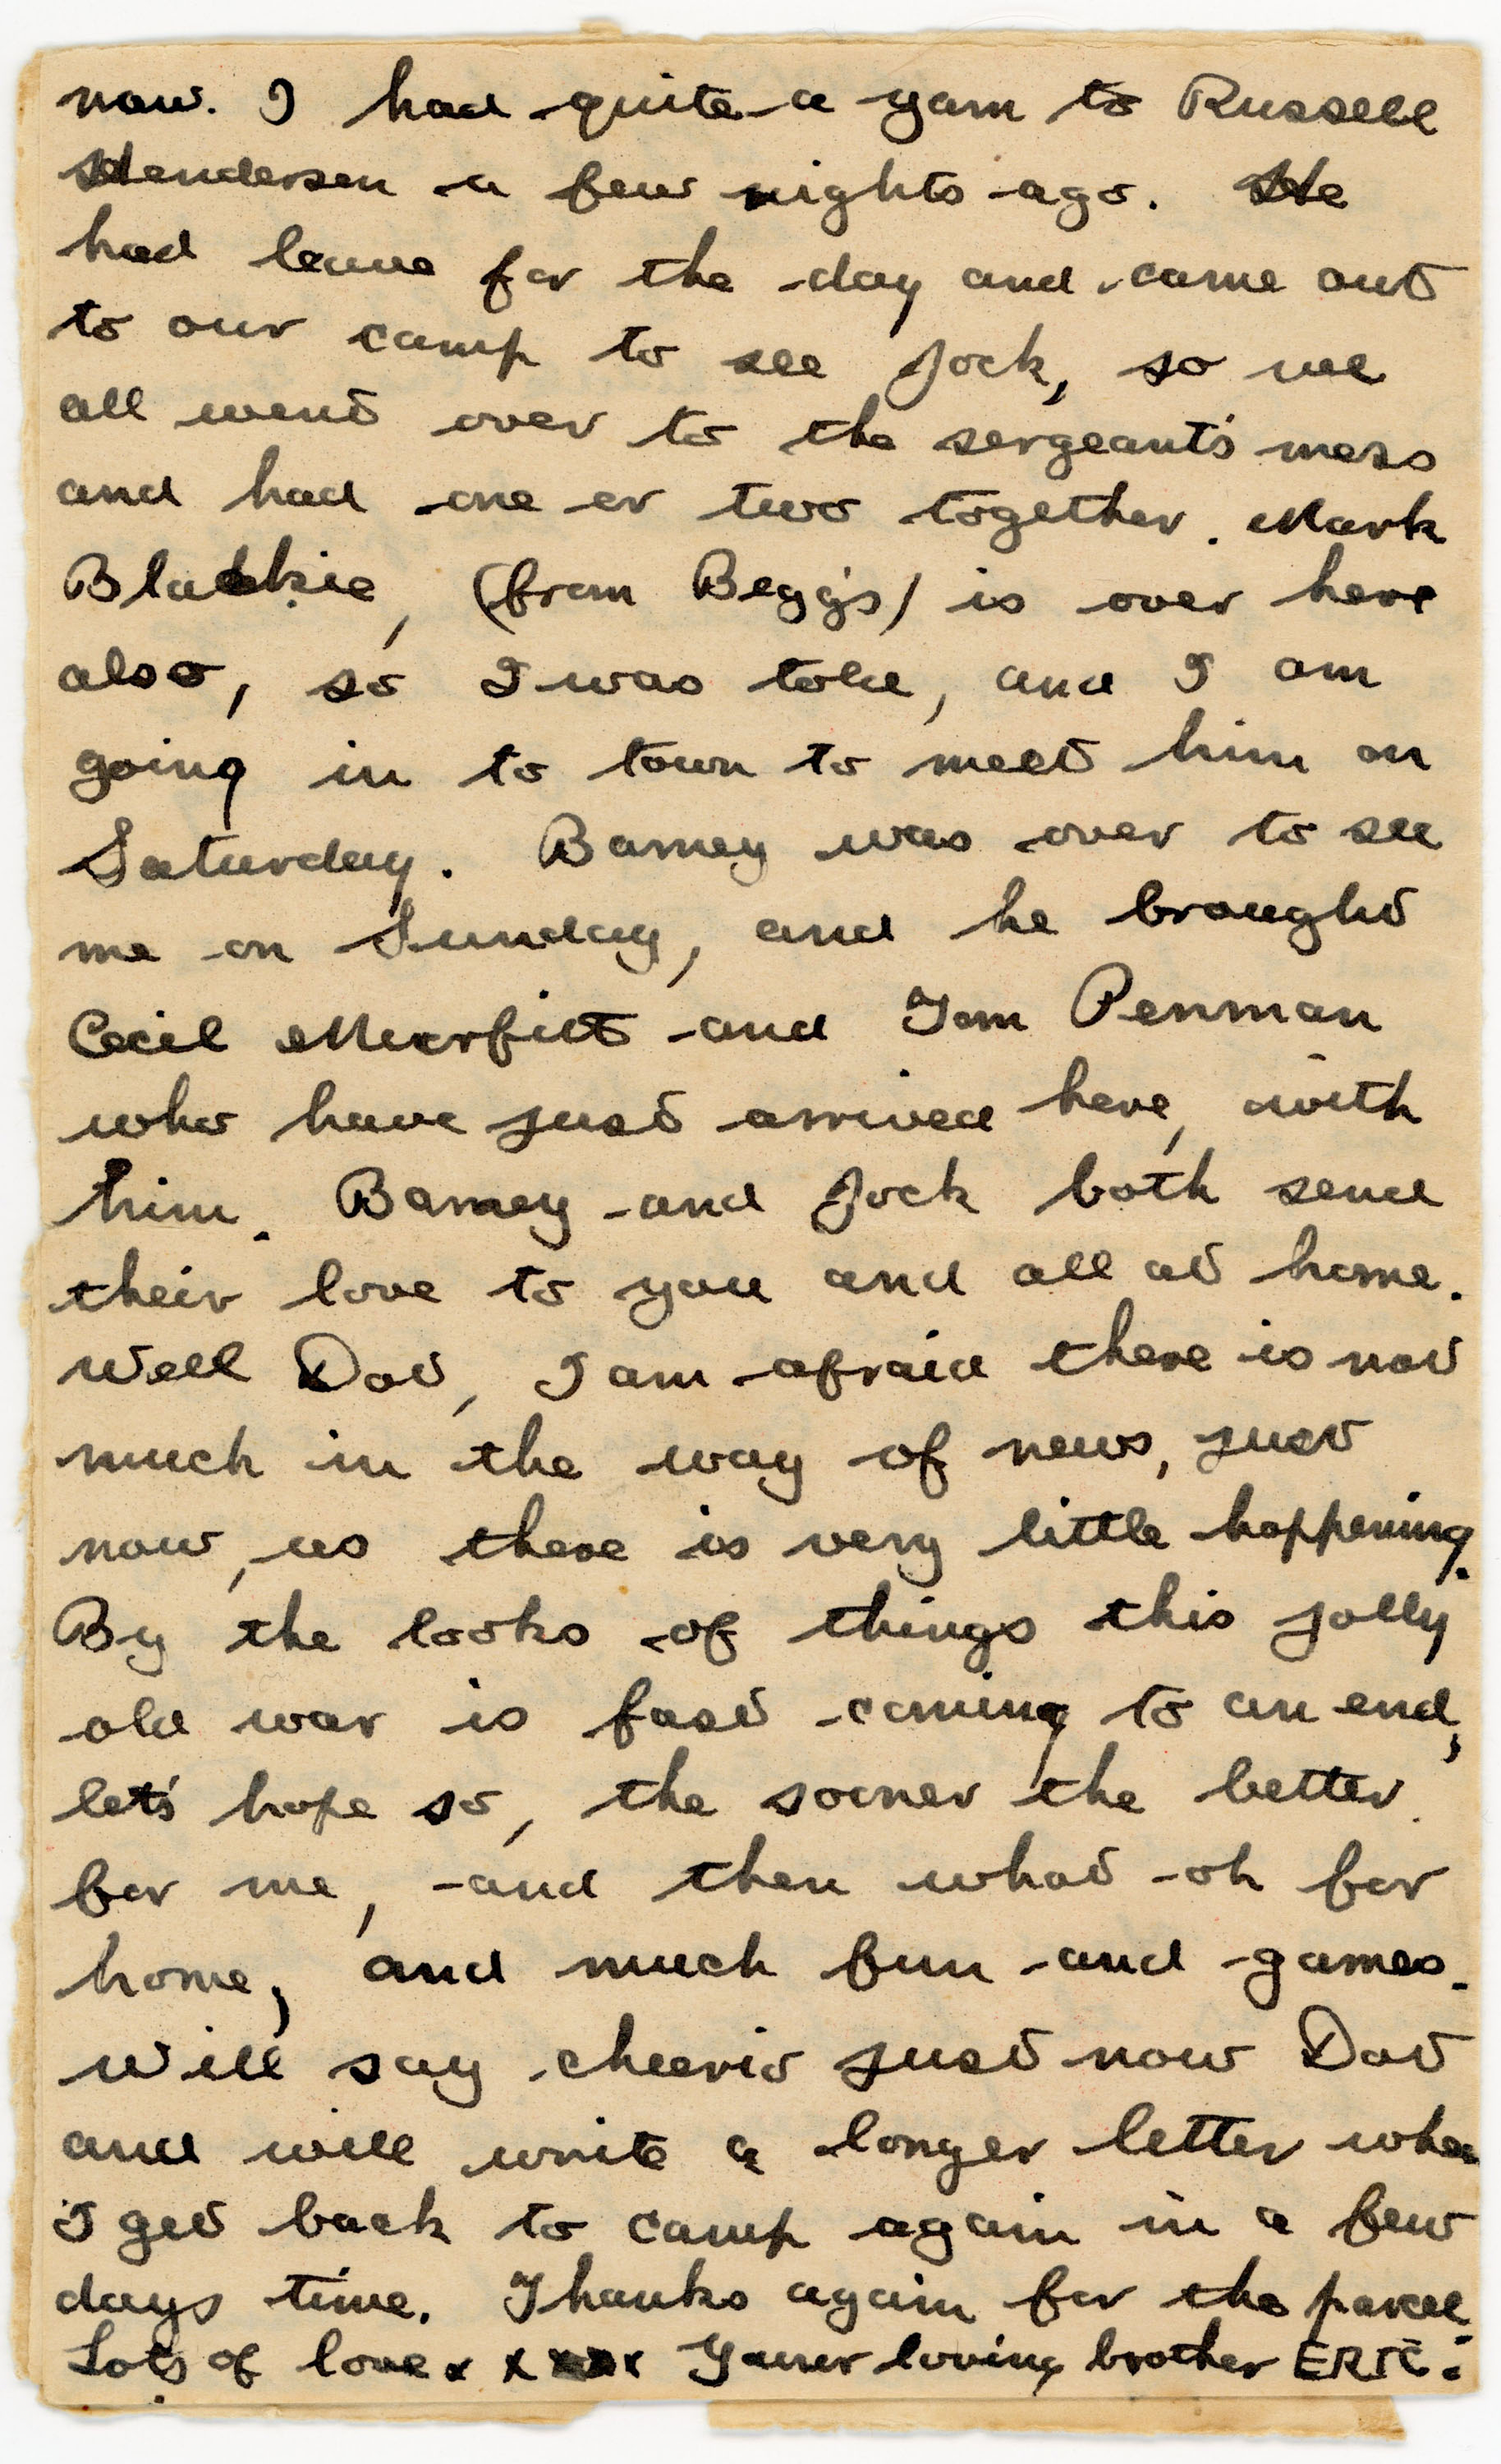 now. I had quite a yarn to Russell
Henderson a few nights ago. He
had leave for the day and came out
to our camp to see Jock, so we
all went over to the sergeant's mess
and had one or two together. Mark
Blackie, (from Begg's) is over here
also, so I was told, and I am
going in to town to meet him on
Saturday. Barney was over to see
me on Sunday, and he brought
Cecil and Tom Penman
who have just arrived here, with
him. Barney and Jock both send
their love to you and all at home.
Well Dot, I am afraid there is not
much in the way of news, just
now, as there is very little happening.
By the looks of things this jolly
old war is fast coming to an end,
let's hope so, the sooner the better
for me, and then what-oh for
home, and much fun and games.
Will say cheerio just now Dot
and will write a longer letter when
I get back to camp again in a few
days time. Thanks again for the parcel.
Lots of love x x x x x Your loving brother ERIC.